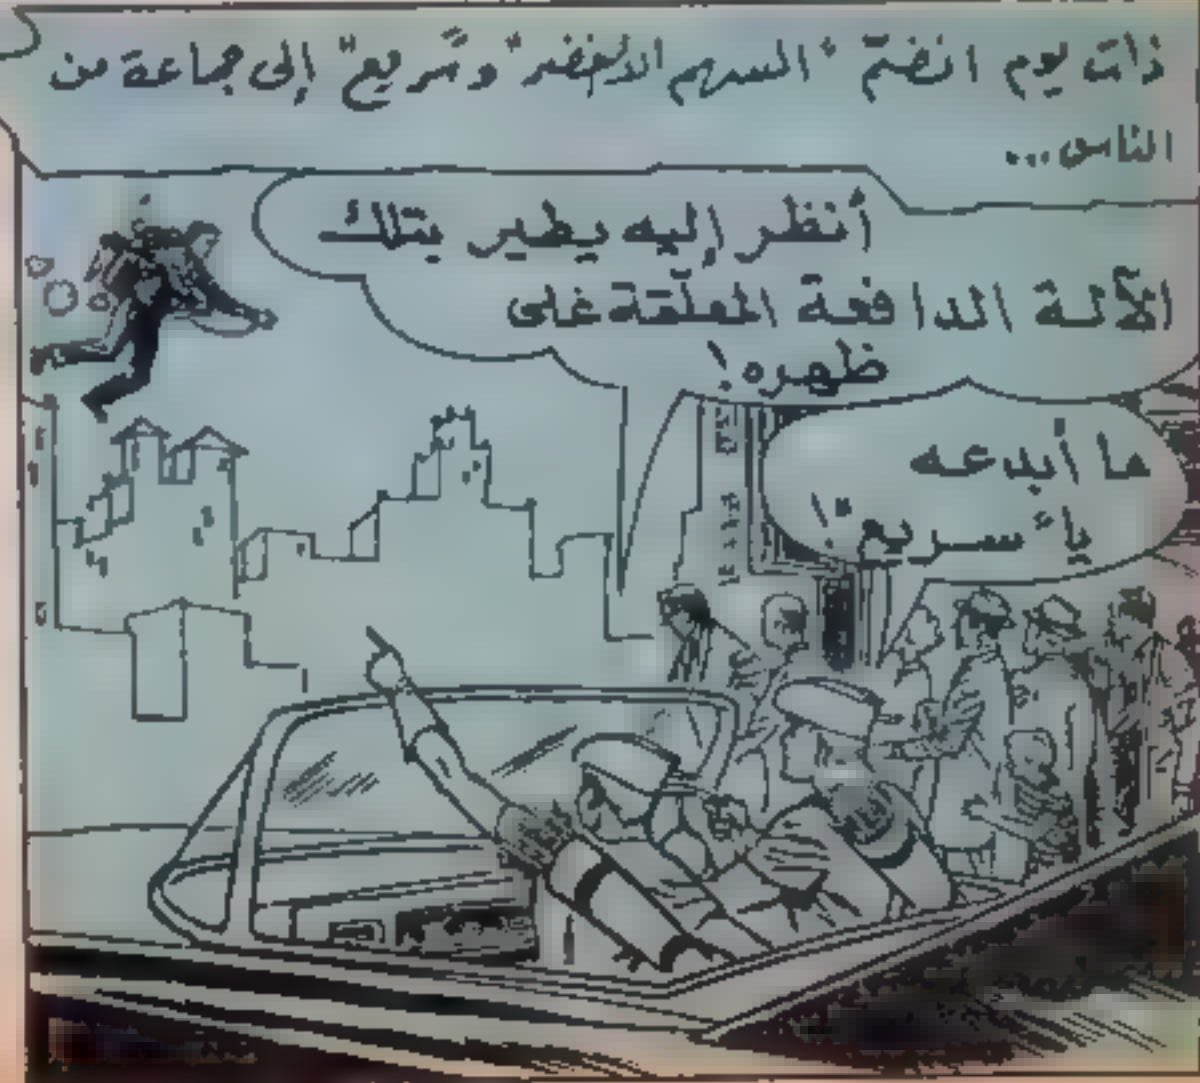 ذات يوم انضمّ "السهم الاخضر" وسريع" إلى جماعة من
الناس...
أنظر إليه يطير بتلك
الآلة الدافعة المعلّقة على
ظهره!
ما أبدعه
يا"سريع"!